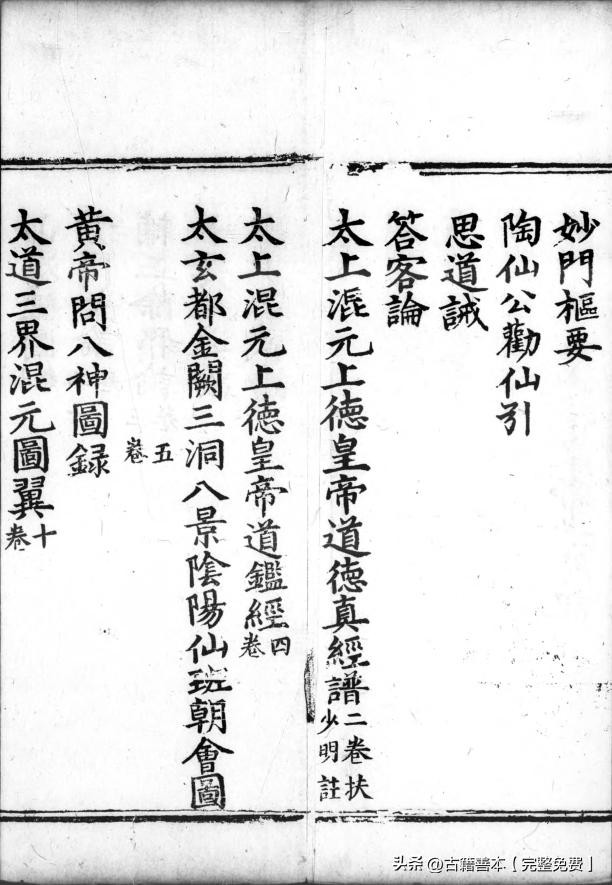 妙門樞要
陶仙公勸仙引
思道誡
答客論
太上混元上德皇帝道德真經譜二卷扶少明註
太上混元上德皇帝道鑑經四卷
太玄都金闕三洞八景陰陽仙班朝會圖
五卷
黃帝問八神圖録
太道三界混元圖翼十卷
头条@古籍善本【完整免费】